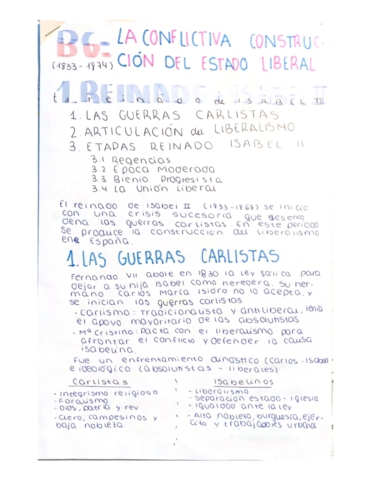 B6: LA CONFLICTIVA CONSTRUC-
(1833-1874) CIÓN DEL ESTADO LIBERAL
1. REINADO DE ISABEL II
1. LAS GUERRAS CARLISTAS
2. ARTICULACIÓN del LIBERALISMO
3. ETAPAS REINADO ISABEL II
3.1 Regencias
3.2 Época Moderada
3.3 Bienio Progresista
3.4 La Unión Liberal
El reinado de Isabel II (1833-1868) se inicia
con una crisis sucesoria que desenca
dena las guerras carlistas En este periodo
se produce la construcción del liberalismo
en España.
1. LAS GUERRAS CARLISTAS
Fernando VII abole en 1830 la ley sálica para
dejar a su hija Isabel como heredera. Su her-
mano Carlos María Isidro no lo acepta, y
se inician las guerras carlistas
- Carlismo: tradicionalista y antiliberal, tenía
el apoyo mayoritario de los absolutistas
- Mª Cristina: Pacta con el liberalismo para
afrontar el conflicto y defender la causa
isabelina.
Fue un enfrentamiento dinástico (Carlos-Isabel)
e ideológico (absolutistas - liberales)
Carlistas
- Integrismo religioso
- Foralismo
- Dios, patria y rey
- Clero, campesinos y
baja nobleza
Isabelinos
- Liberalismo
- Separación estado-iglesia
- Igualdad ante la ley
- Alta nobleza, burguesía, ejér-
cito y trabajadores urbanos